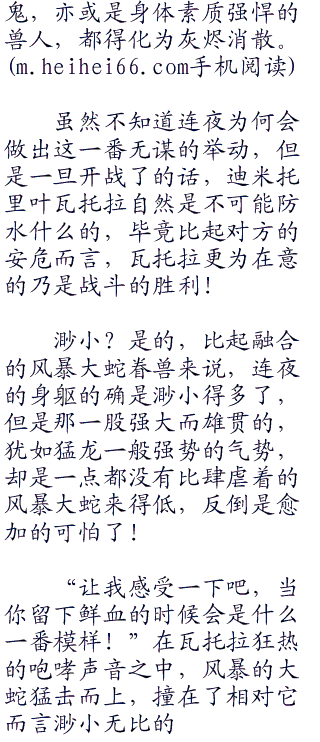 鬼，亦或是身体素质强悍的
兽人，都得化为灰烬消散。
(m.heihei66.com手机阅读)
虽然不知道连夜为何会
做出这一番无谋的举动，但
是一旦开战了的话，迪米托
里叶瓦托拉自然是不可能防
水什么的，毕竟比起对方的
安危而言，瓦托拉更为在意
的乃是战斗的胜利！
渺小？是的，比起融合
的风暴大蛇眷兽来说，连夜
的身躯的确是渺小得多了，
但是那一股强大而雄贯的，
犹如猛龙一般强势的气势，
却是一点都没有比肆虐着的
风暴大蛇来得低，反倒是愈
加的可怕了！
“让我感受一下吧，当
你留下鲜血的时候会是什么
一番模样！”在瓦托拉狂热
的咆哮声音之中，风暴的大
蛇猛击而上，撞在了相对它
而言渺小无比的